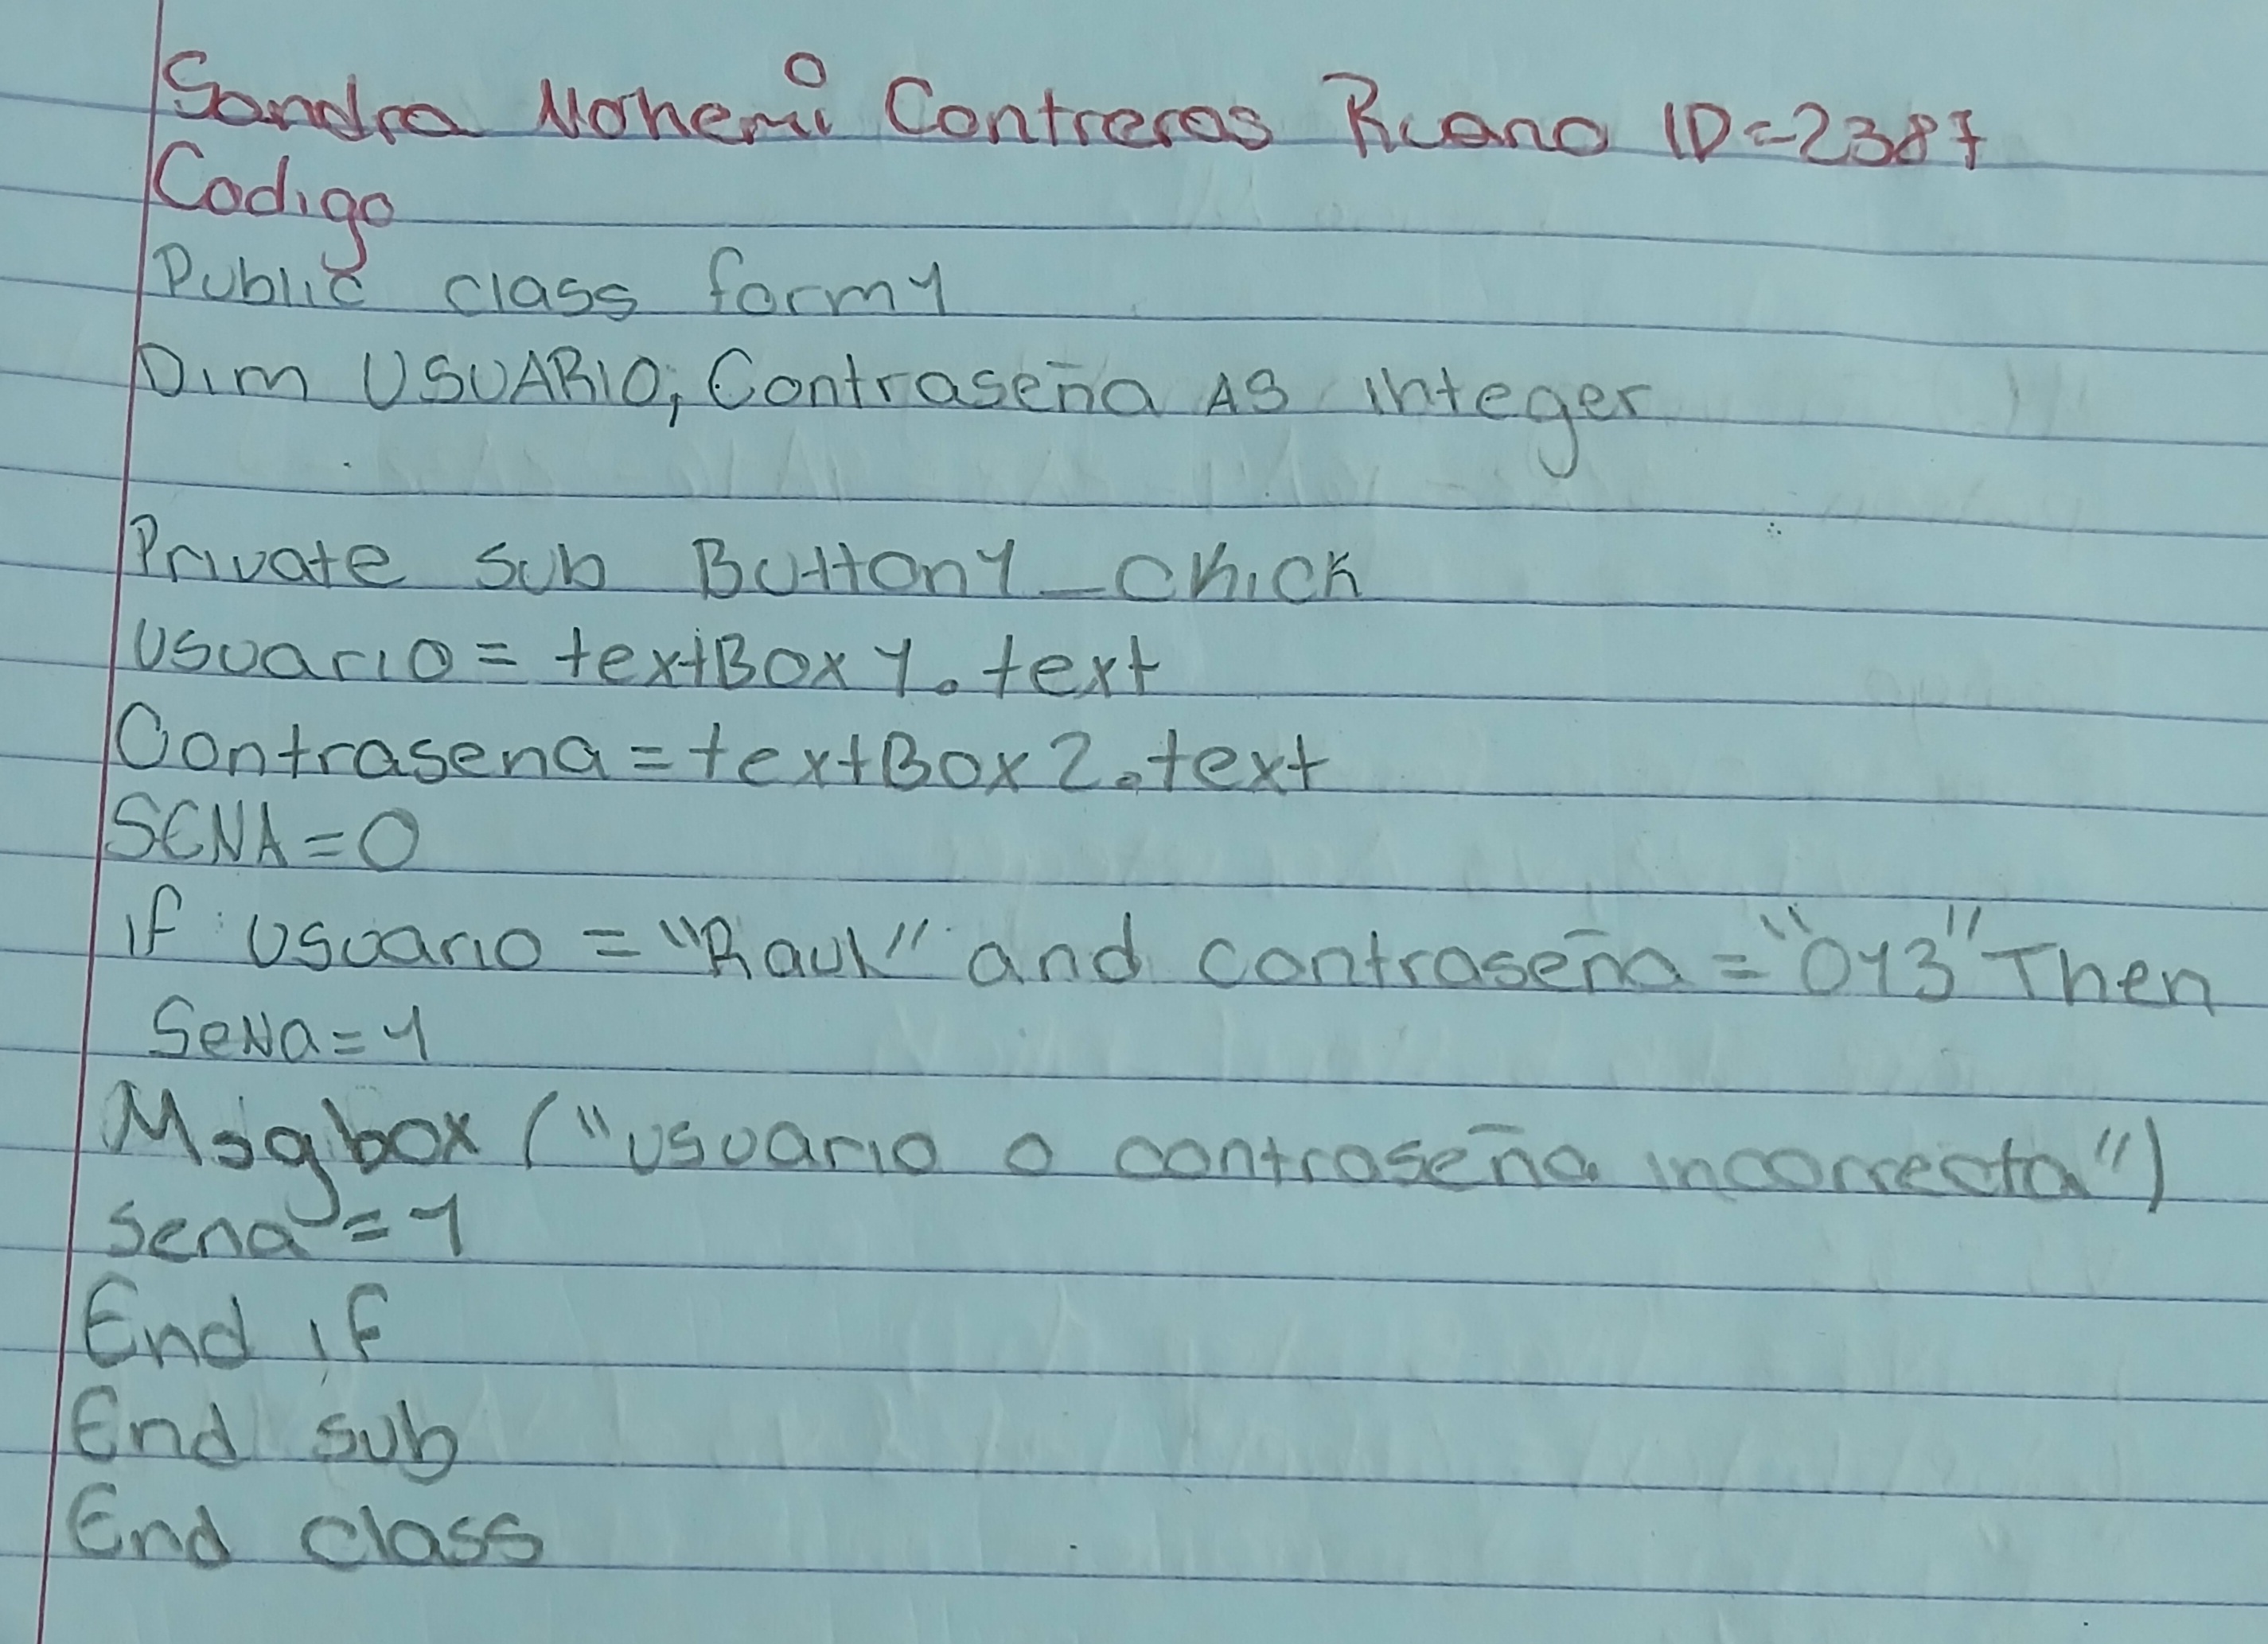 Sandra Nohemí Contreras Ruano ID=2387
Codigo
Public class form1
Dim USUARIO, Contraseña AS integer
Private sub Button1_Chick
Usuario = textBox 1. text
Contrasena = textBox 2. text
SENA = 0
if usuario = "Raul" and contraseña = "013" Then
SeNa = 1
Msgbox ("usuario o contraseña incorrecta")
Sena = 1
End if
End sub
End class